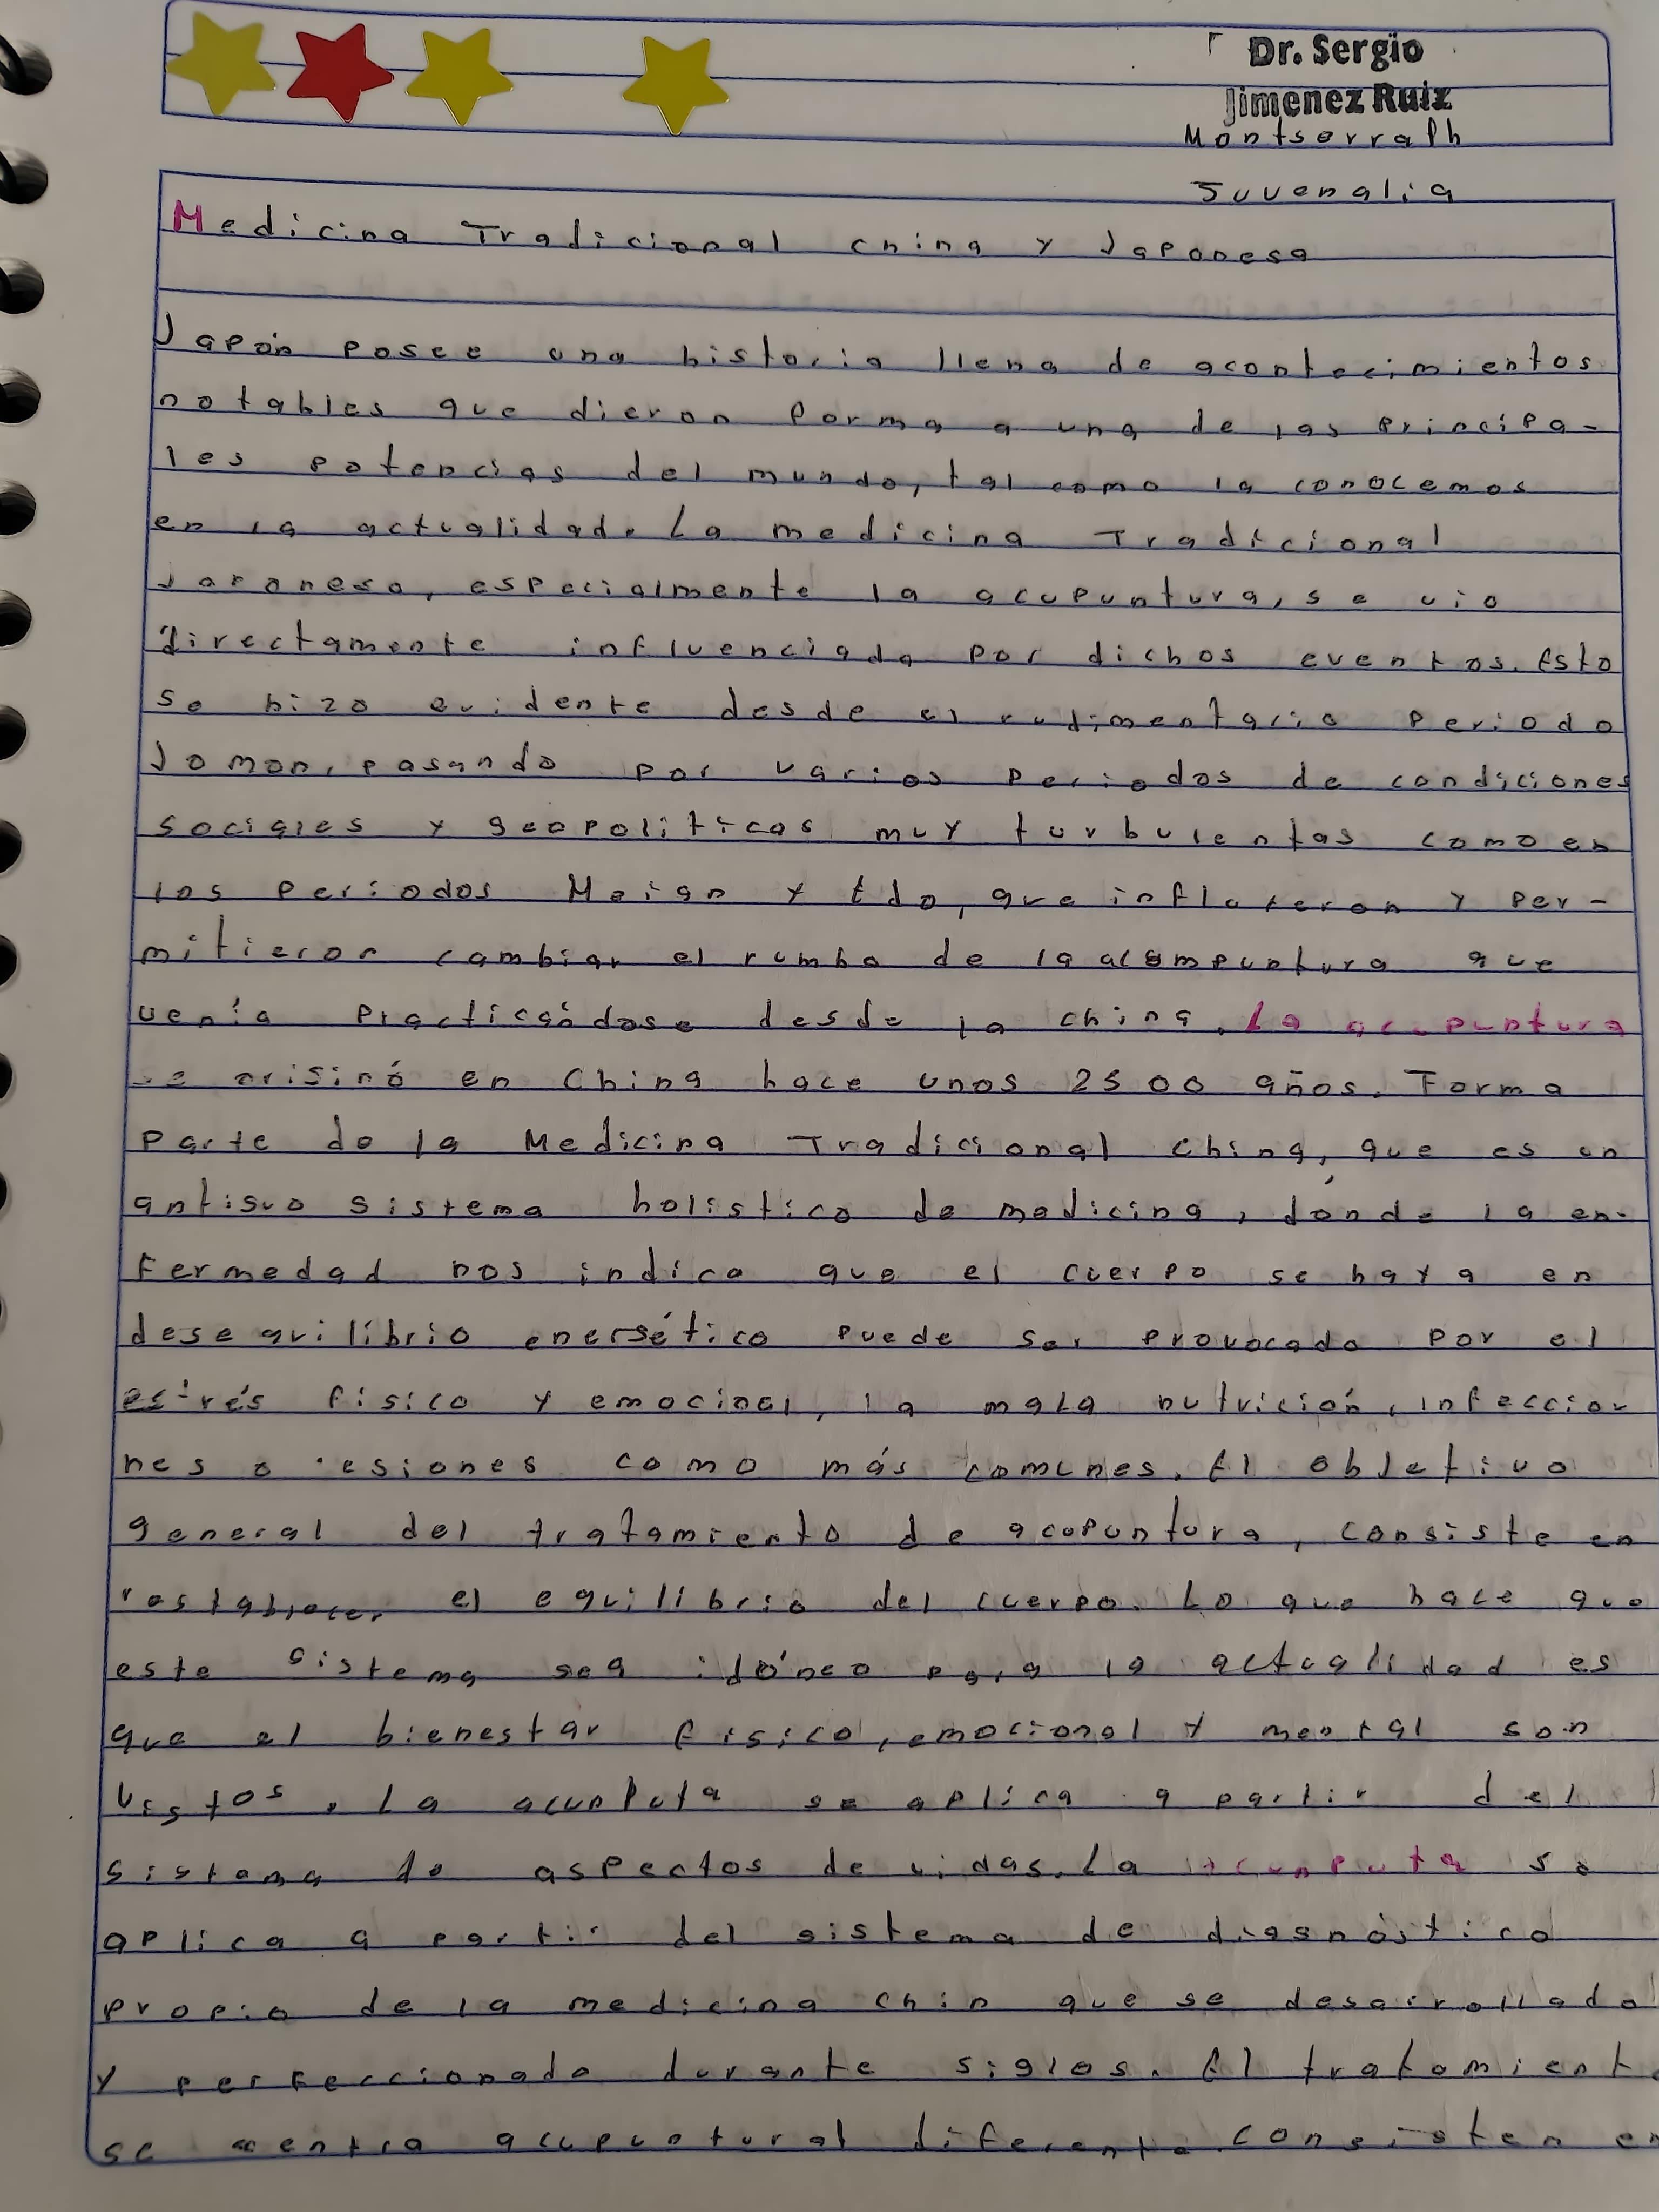 Dr. Sergio
Jimenez Ruiz
Montserrath
Juvenalia
Medicina Tradicional china y Japonesa
Japón posee una historia llena de acontecimientos
notables que dieron forma a una de las principa-
les potencias del mundo, tal como la conocemos
en la actualidad. La medicina Tradicional
Japonesa, especialmente la acupuntura, se vio
directamente influenciada por dichos eventos. Esto
se hizo evidente desde el rudimentario periodo
Jomon, pasando por varios periodos de condiciones
sociales y geopoliticas muy turbulentas como en
los periodos Heian y Edo, que influyeron y per-
mitieron cambiar el rumbo de la que
venía practicándose desde la china. La acupuntura
se originó en China hace unos 2500 años. Forma
parte de la Medicina Tradicional China, que es un
antiguo sistema holistico de medicina, dónde la en-
fermedad nos indica que el cuerpo se haya en
desequilibrio energético puede ser provocado por el
estrés fisico y emocinal, la mala nutrición, infeccio
nes o lesiones como más comunes. El objetivo
general del tratamiento de acupuntura, consiste en
restablecer el equilibrio del cuerpo. Lo que hace que
este sistema sea idóneo para la actualidad es
que el bienestar fisico, emocional y mental son
vistos. La acunputa se aplica a partir del
sistema de aspectos de vidas. La acunputa se
aplica a partir del sistema de diagnóstico
propio de la medicina chin que se desarrollado
y perfeccionado durante siglos. El tratamient
se centra acupuntural diferente consisten en